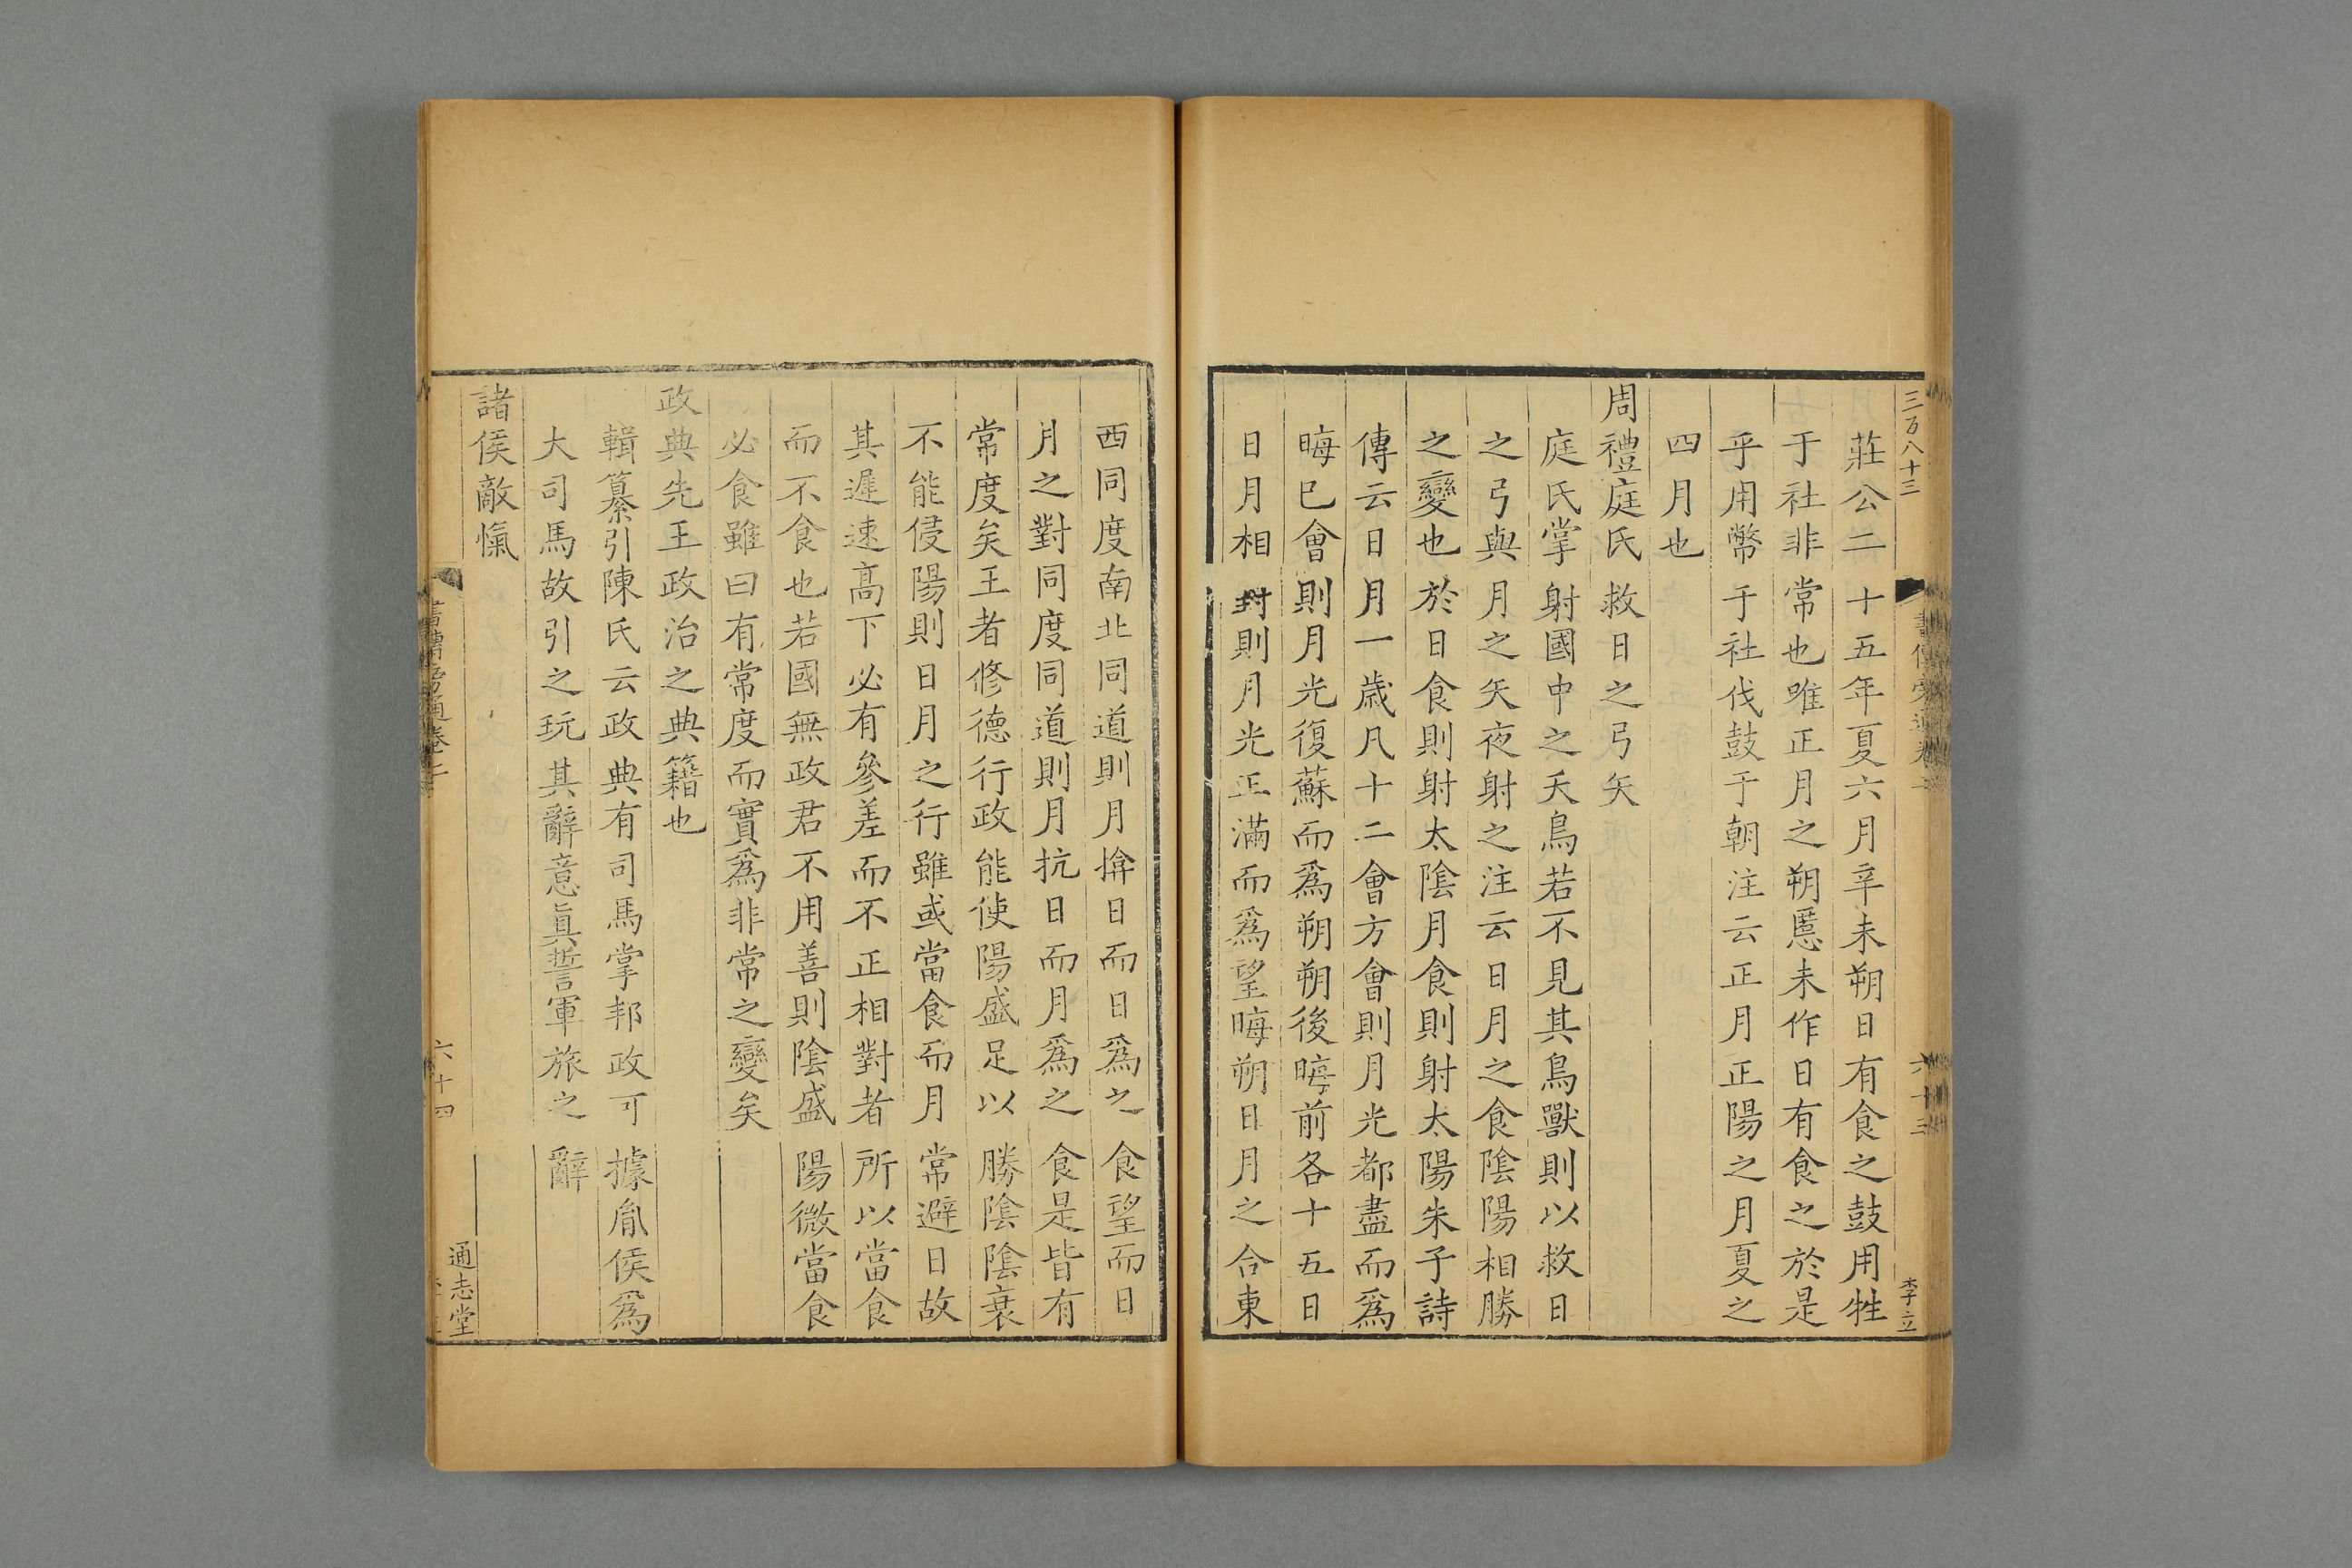 三百八十三
李立
莊公二十五年夏六月辛未朔日有食之鼓用牲
于社非常也唯正月之朔慝未作日有食之於是
乎用幣于社伐鼓于朝注云正月正陽之月夏之
四月也
周禮庭氏救日之弓矢
庭氏掌射國中之夭鳥若不見其鳥獸則以救日
之弓與月之矢夜射之注云日月之食陰陽相勝
之變也於日食則射太陰月食則射太陽朱子詩
傳云日月一歲凡十二會方會則月光都盡而爲
晦巳會則月光復蘇而爲朔朔後晦前各十五日
日月相對則月光正滿而爲望晦朔日月之合東
西同度南北同道則月揜日而日爲之食望而日
月之對同度同道則月抗日而月爲之食是皆有
常度矣王者修德行政能使陽盛足以勝陰陰衰
不能侵陽則日月之行雖或當食而月常避日故
其遲速高下必有參差而不正相對者所以當食
而不食也若國無政君不用善則陰盛陽微當食
必食雖曰有常度而實爲非常之變矣
政典先王政治之典籍也
輯纂引陳氏云政典有司馬掌邦政可據胤侯爲
大司馬故引之玩其辭意真誓軍旅之辭
諸侯敵愾
書傳旁通卷二
六十四
通志堂